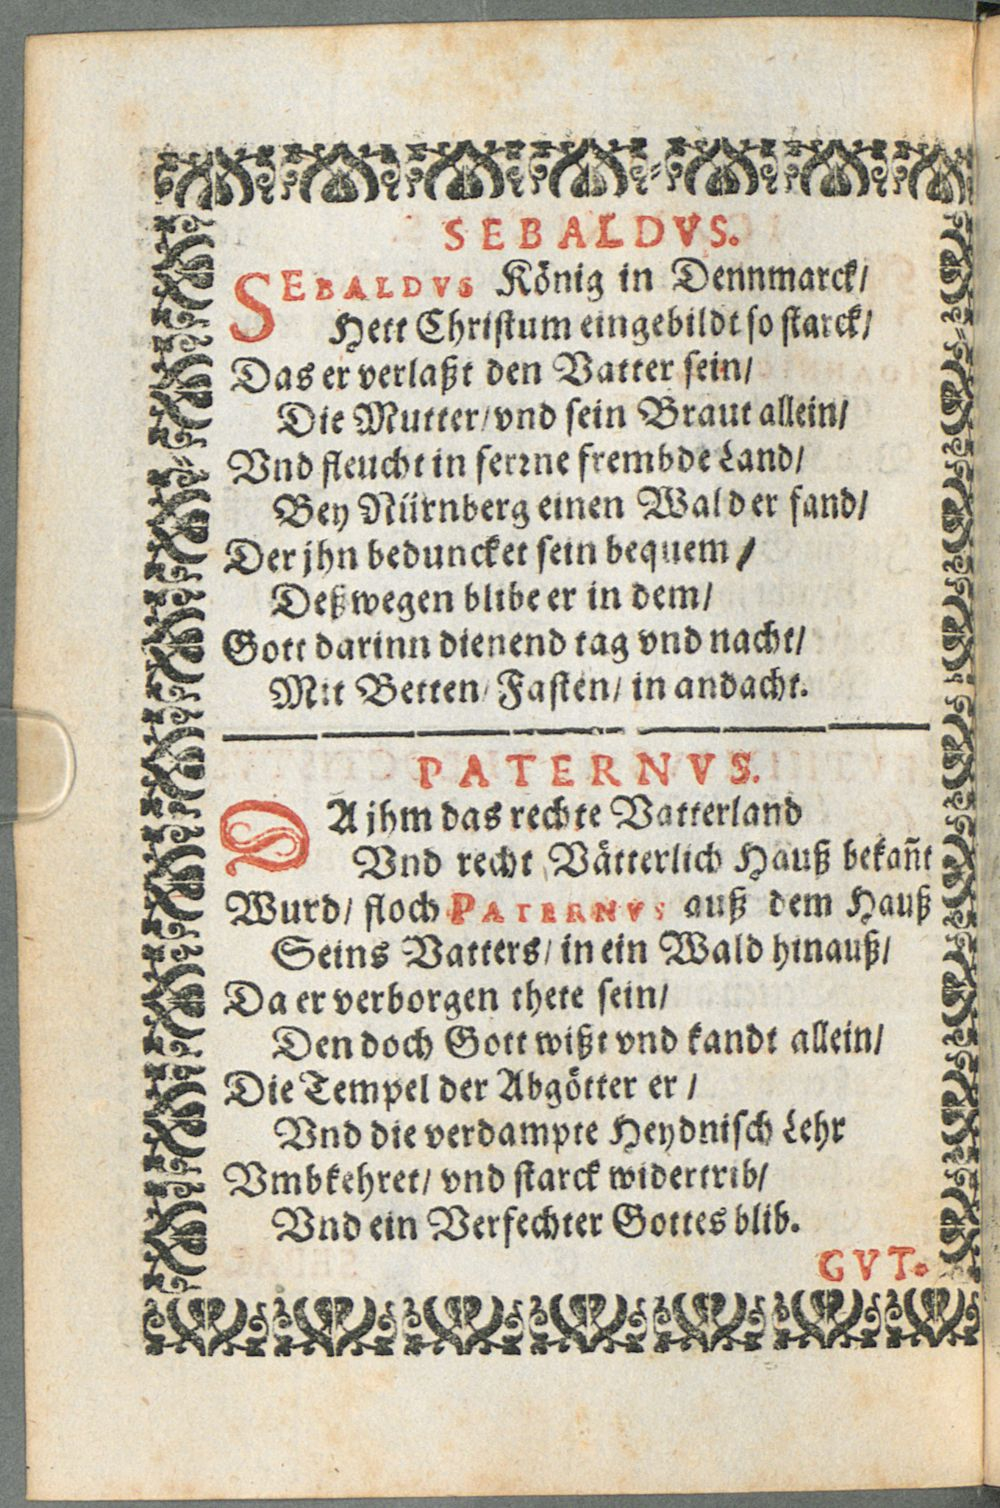 SEBALDVS.
SEBALDVS König in Dennmarck/
Hett Christum eingebildt so starck/
Das er verlaßt den Vatter sein/
Die Mutter/ vnd sein Braut allein/
Vnd fleucht in ferrne frembde Land/
Bey Nürnberg einen Wald er fand/
Der jhn beduncket sein bequem/
Deßwegen blibe er in dem/
Gott darinn dienend tag vnd nacht/
Mit Betten/ Fasten/ in andacht.
PATERNVS.
DA jhm das rechte Vatterland
Vnd recht Vätterlich Hauß bekañt
Wurd/ floch PATERNVS auß dem Hauß
Seins Vatters/ in ein Wald hinauß/
Da er verborgen thete sein/
Den doch Gott wißt vnd kandt allein/
Die Tempel der Abgötter er/
Vnd die verdampte Heydnisch Lehr
Vmbkehret/ vnd starck widertrib/
Vnd ein Verfechter Gottes blib.
GVT.